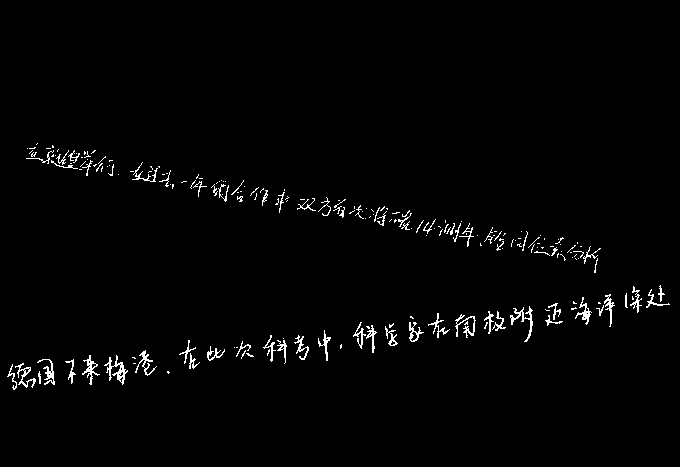 在敦煌举行.在过去一年的合作中双方首次将碳14测年、铅同位素分析
德国不来梅港.在此次科考中,科学家在南极附近海洋深处